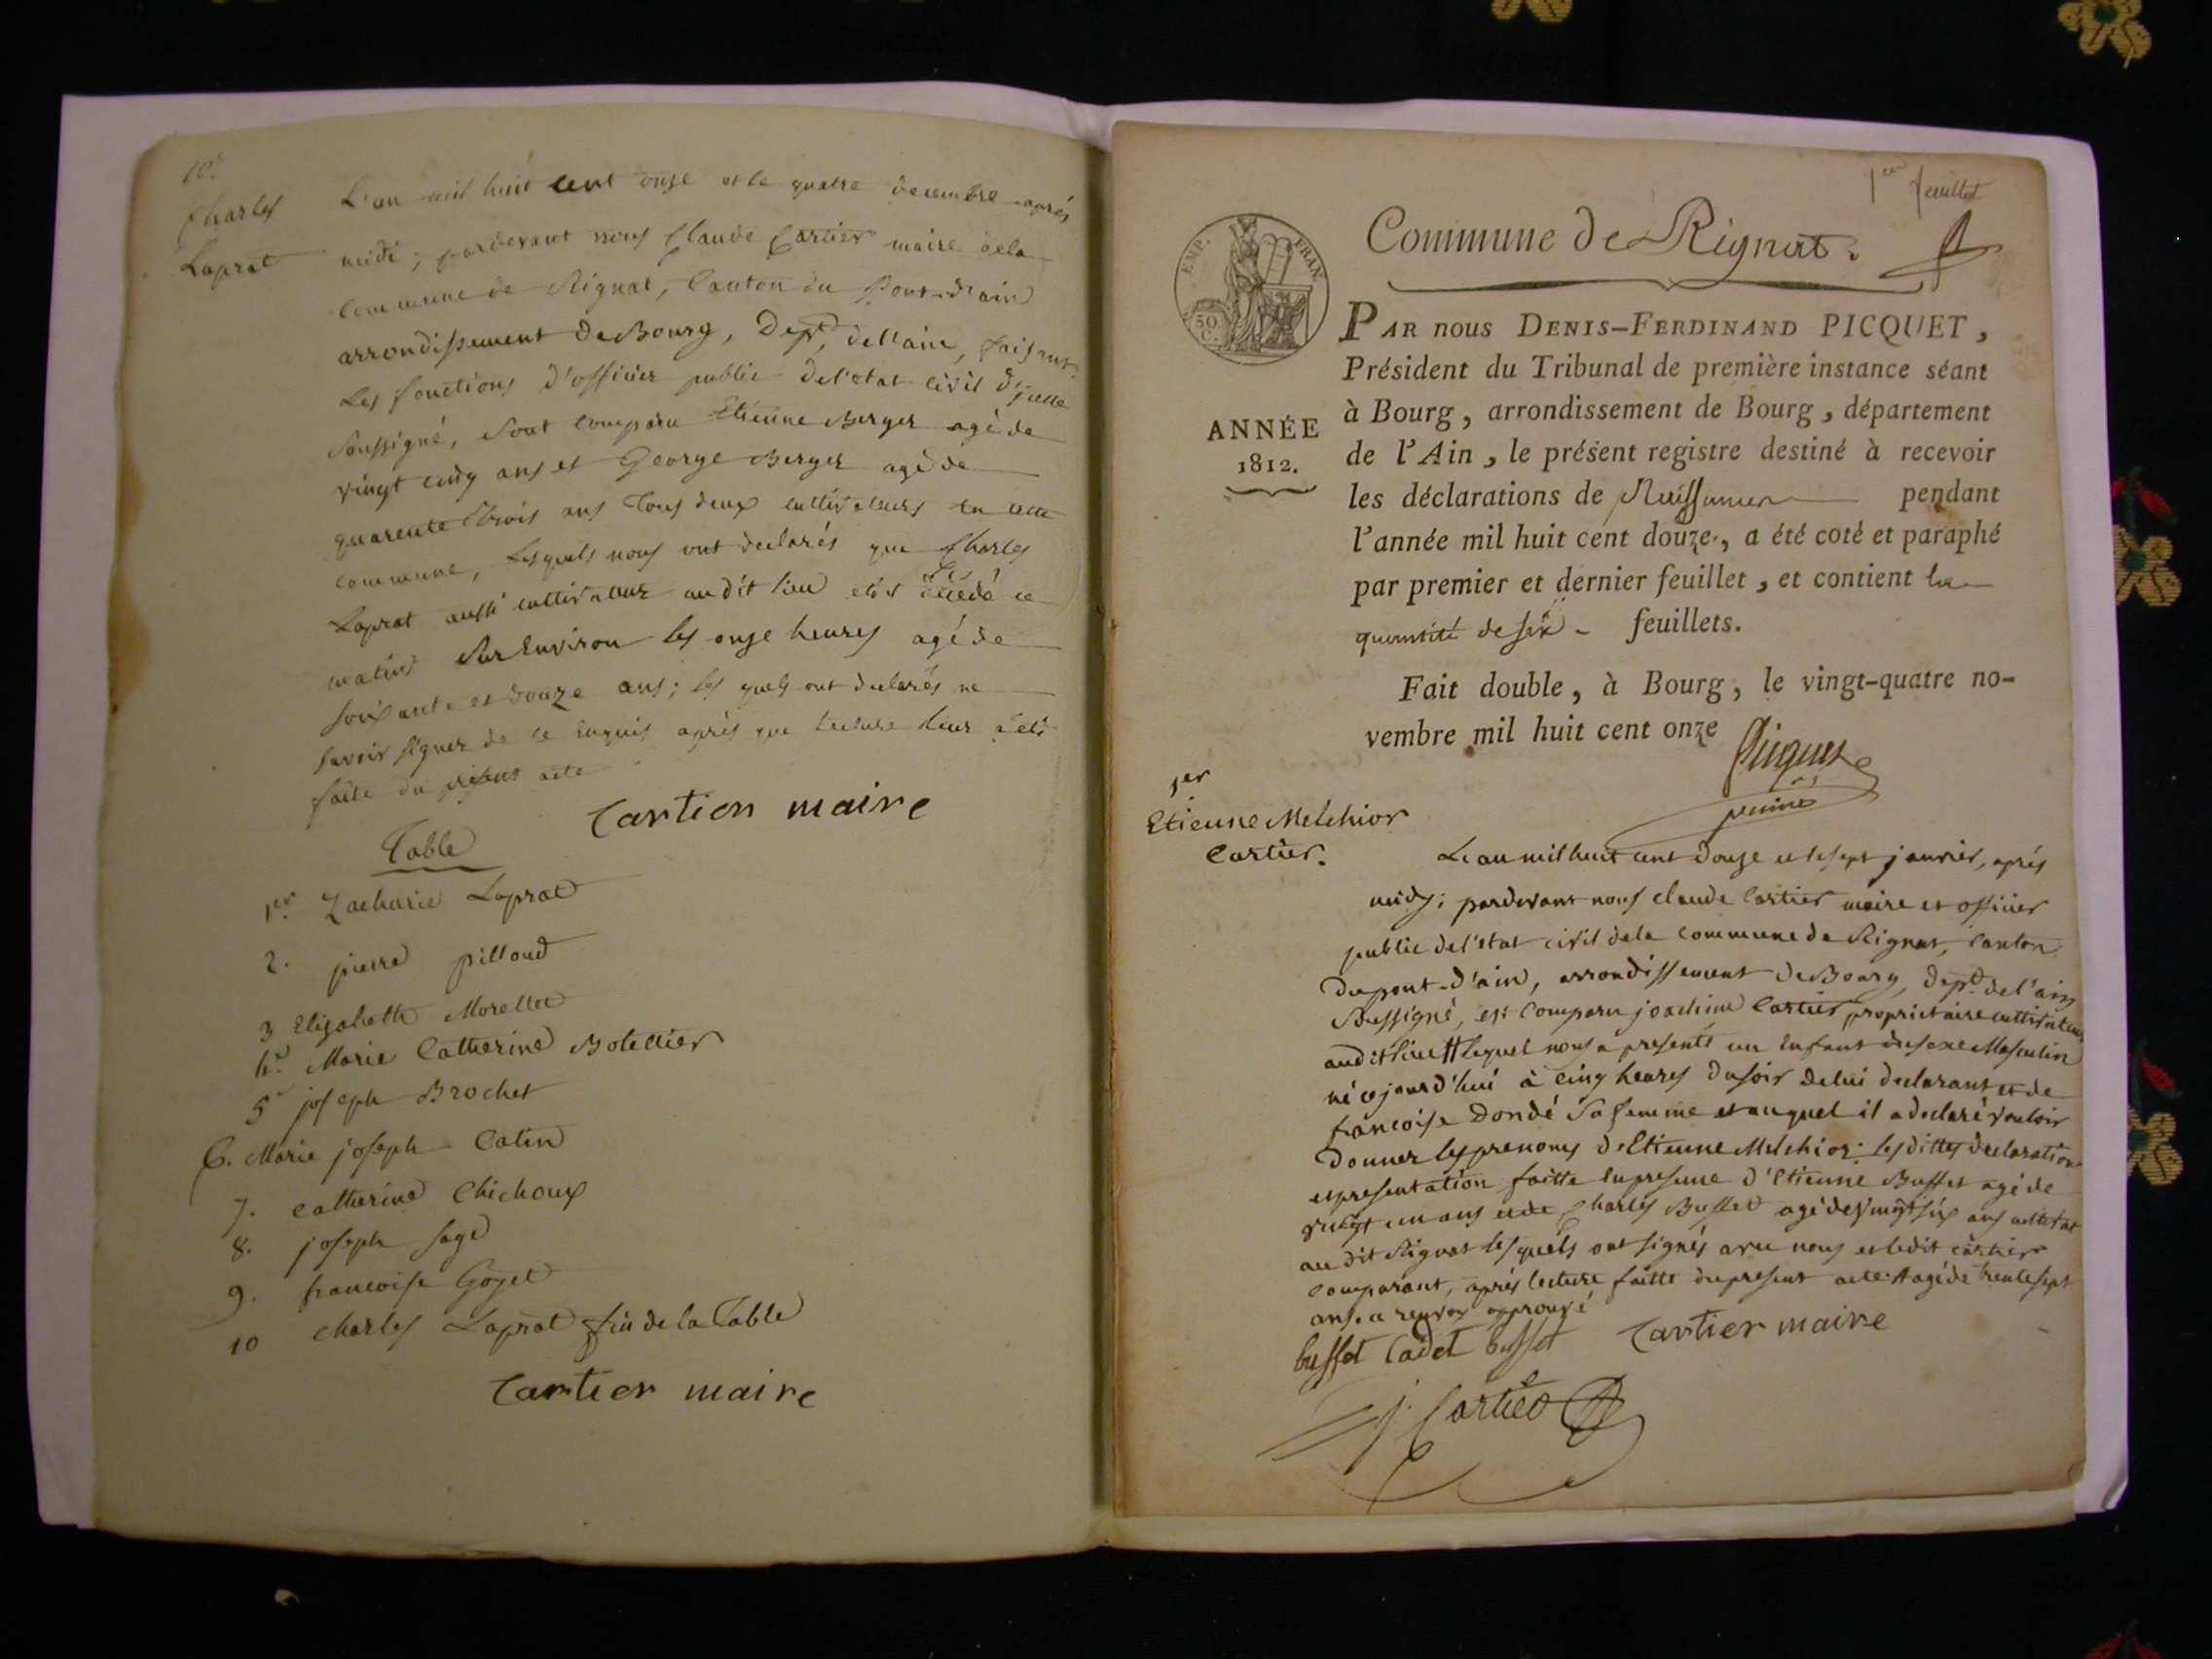 10.e
Charles
Laprat
L'an mil huit cent onze et le quatre decembre après
midi ; pardevant nous Claude Cartier maire dela
Commune de Rignat, Canton du Pont-d'ain
arrondissement De Bourg, Dept, dellain, faisant
Les fonctions d'officier public del'etat civil d'jcelle
Soussigné, Sont comparu Etienne Berger agé de
vingt cinq ans et George Berger agé de
quarente trois ans tous deux cultivateurs en cette
commune, Lesquels nous ont declarés que Charles
Laprat aussi cultivateur audit lieu etoit décedé ce
matin Sur Environ les onze heures agé de
soixante et douze ans ; les quels ont declarés ne
savoir signer de ce Enquis après que lecture leur a eté
faite du présent acte
Cartier maire
Table
1er Zacharie Laprat
2. pierre pilloud
3 Elizabeth Morellet
4.e Marie Catherine Botellier
5 joseph Brochet
6. Marie joseph Catin
7. Catherine Chichoux
8. joseph Sage
9. francoise Goyet
10 Charles Laprat fin de la Table
Cartier maire
1er feuillet
EMP. FRAN.
50 C.
Commune de Rignat.
PAR nous DENIS-FERDINAND PICQUET,
Président du Tribunal de première instance séant
à Bourg, arrondissement de Bourg, département
ANNÉE
1812.
de l'Ain, le présent registre destiné à recevoir
les déclarations de Naissances pendant
l'année mil huit cent douze, a été coté et paraphé
par premier et dernier feuillet, et contient la
quantité de six - feuillets.
Fait double, à Bourg, le vingt-quatre no-
vembre mil huit cent onze
Picquet
1er
Etienne Melchior
Cartier.
L'an mil huit cent douze et le sept janvier, après
midy ; pardevant nous claude Cartier maire et officier
public del'etat civil dela commune de Rignat, Canton
Du pont-d'ain, arrondissement De Bourg, dept. de l'ain
Soussigné, est Comparu joachim Cartier proprietaire cultivateur
audit lieu # lequel nous a presenté un Enfant du sexe Masculin
né cejourd'hui à cinq heures du soir de lui declarant et de
francoise Dondé Sa femme et auquel il a declaré vouloir
Donner les prenoms d'Etienne Melchior : les dittes declaration
et presentation faitte en presence d'Etienne Buffet agé de
vingt un ans et de Charles Buffet agé de vingt six ans
au dit Rignat lesquels ont signés avec nous et ledit Cartier
comparant, après lecture faitte du present acte. # agé de trente sept
ans. a renvoy approuvé
buffet Cadet buffet Cartier maire
j. Cartier